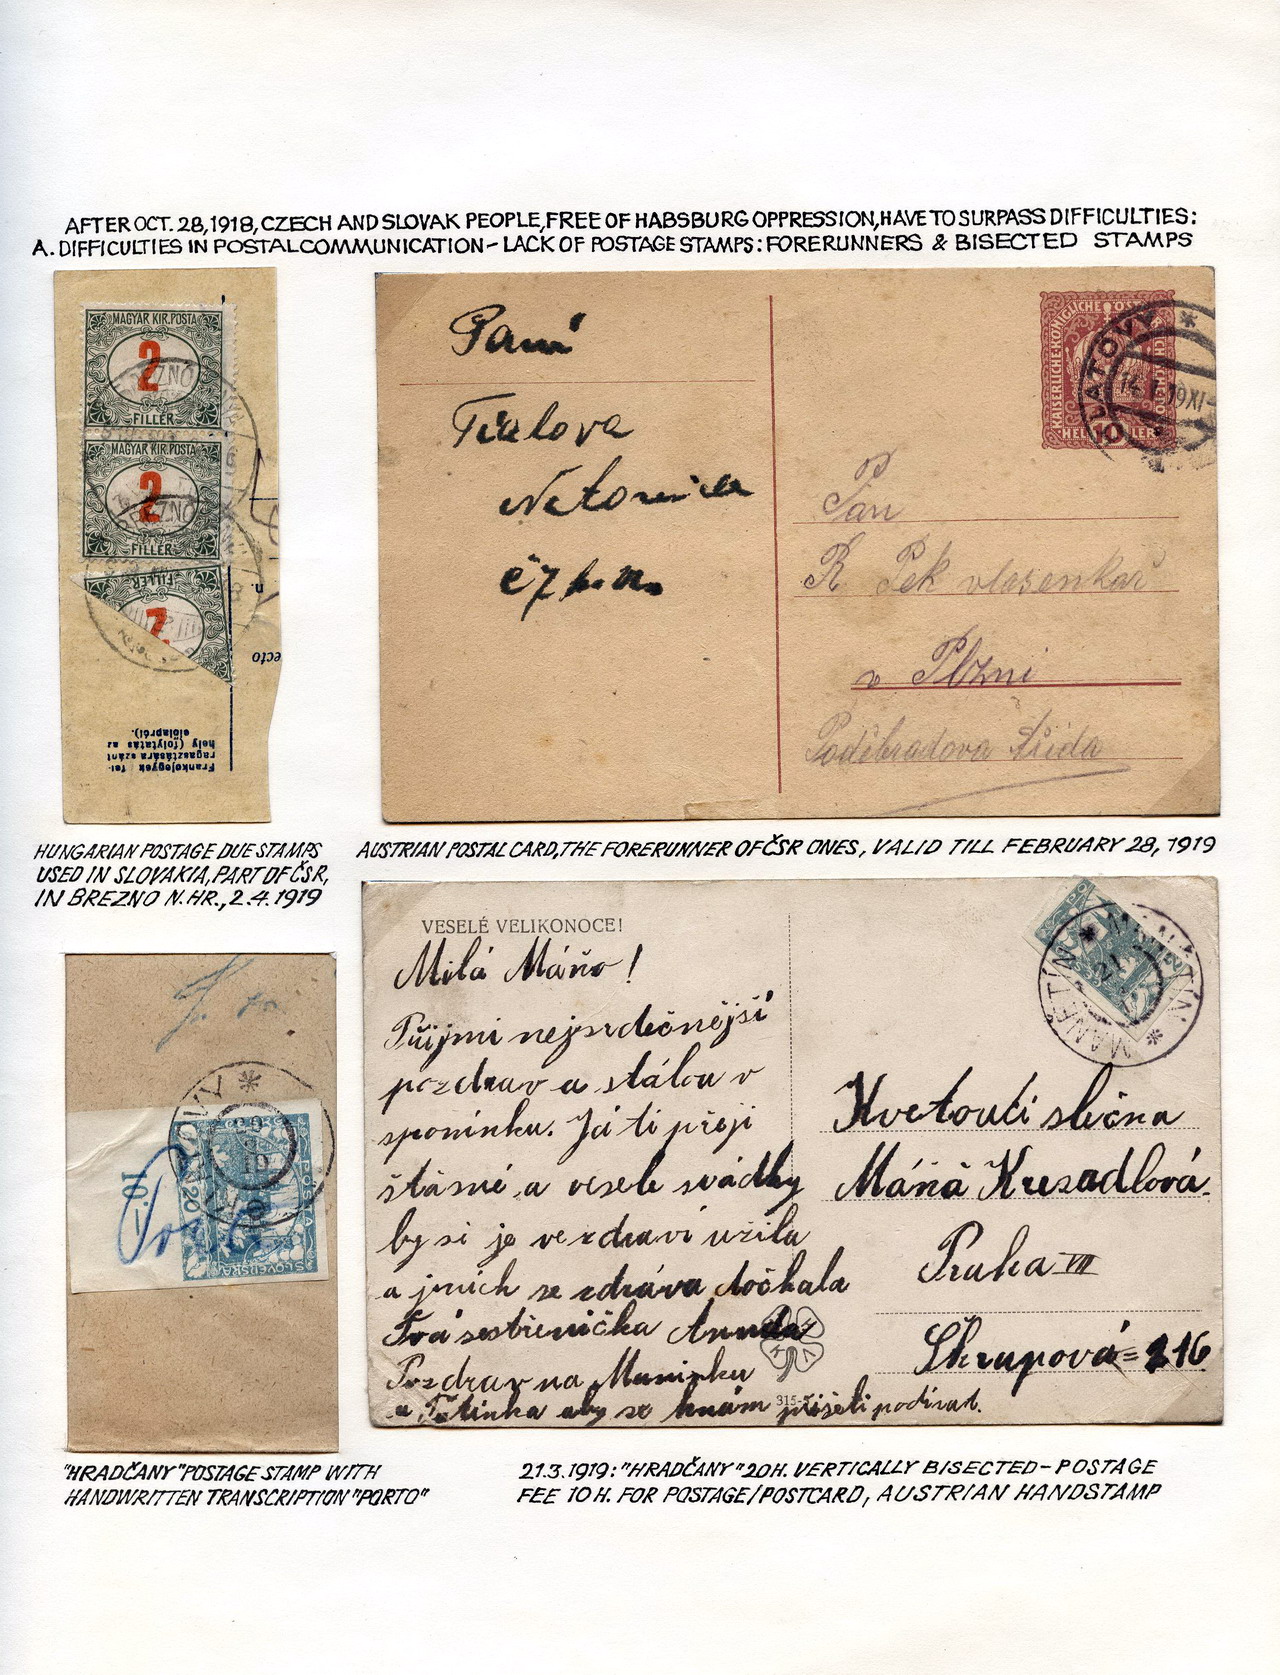 AFTER OCT. 28, 1918, CZECH AND SLOVAK PEOPLE, FREE OF HABSBURG OPPRESSION, HAVE TO SURPASS DIFFICULTIES:
A. DIFFICULTIES IN POSTAL COMMUNICATION – LACK OF POSTAGE STAMPS: FORERUNNERS & BISECTED STAMPS
MAGYAR KIR. POSTA
2
FILLÉR
MAGYAR KIR. POSTA
2
FILLÉR
FILLÉR
2
Frankojegyek fel-
ragasztására szánt
hely (folytatás az
előlapról).
Paní
čj. p. n.
KAISERLICHE KÖNIGLICHE
10
HELLER
KLATOVY
Pan
R Pek vlasenkař
v Plzni
Poděbradova třída
HUNGARIAN POSTAGE DUE STAMPS
USED IN SLOVAKIA, PART OF ČSR,
IN BREZNO N. HR., 2.4.1919
AUSTRIAN POSTAL CARD, THE FORERUNNER OF ČSR ONES, VALID TILL FEBRUARY 28, 1919
VESELÉ VELIKONOCE!
Milá Máňo!
Přijmi nejsrdečnější
pozdrav a stálou v
spomínku. Já ti přeji
štásné a veselé svádky
by si je ve zdraví užila
a jiních se zdráva dočkala
Tvá sestřenička Anda
Pozdrav na Maminku
a Tětinka aby se k nám přišeli podívat.
315-
MANĚTÍN * MANĚTÍN *
21
Kvetoucí slečna
Máňa Kresadlová
Praha VII
Škrupová = 216
10.–
Porto
20
"HRADČANY" POSTAGE STAMP WITH
HANDWRITTEN TRANSCRIPTION "PORTO"
21.3.1919: "HRADČANY" 20H. VERTICALLY BISECTED – POSTAGE
FEE 10 H. FOR POSTAGE/POSTCARD, AUSTRIAN HANDSTAMP